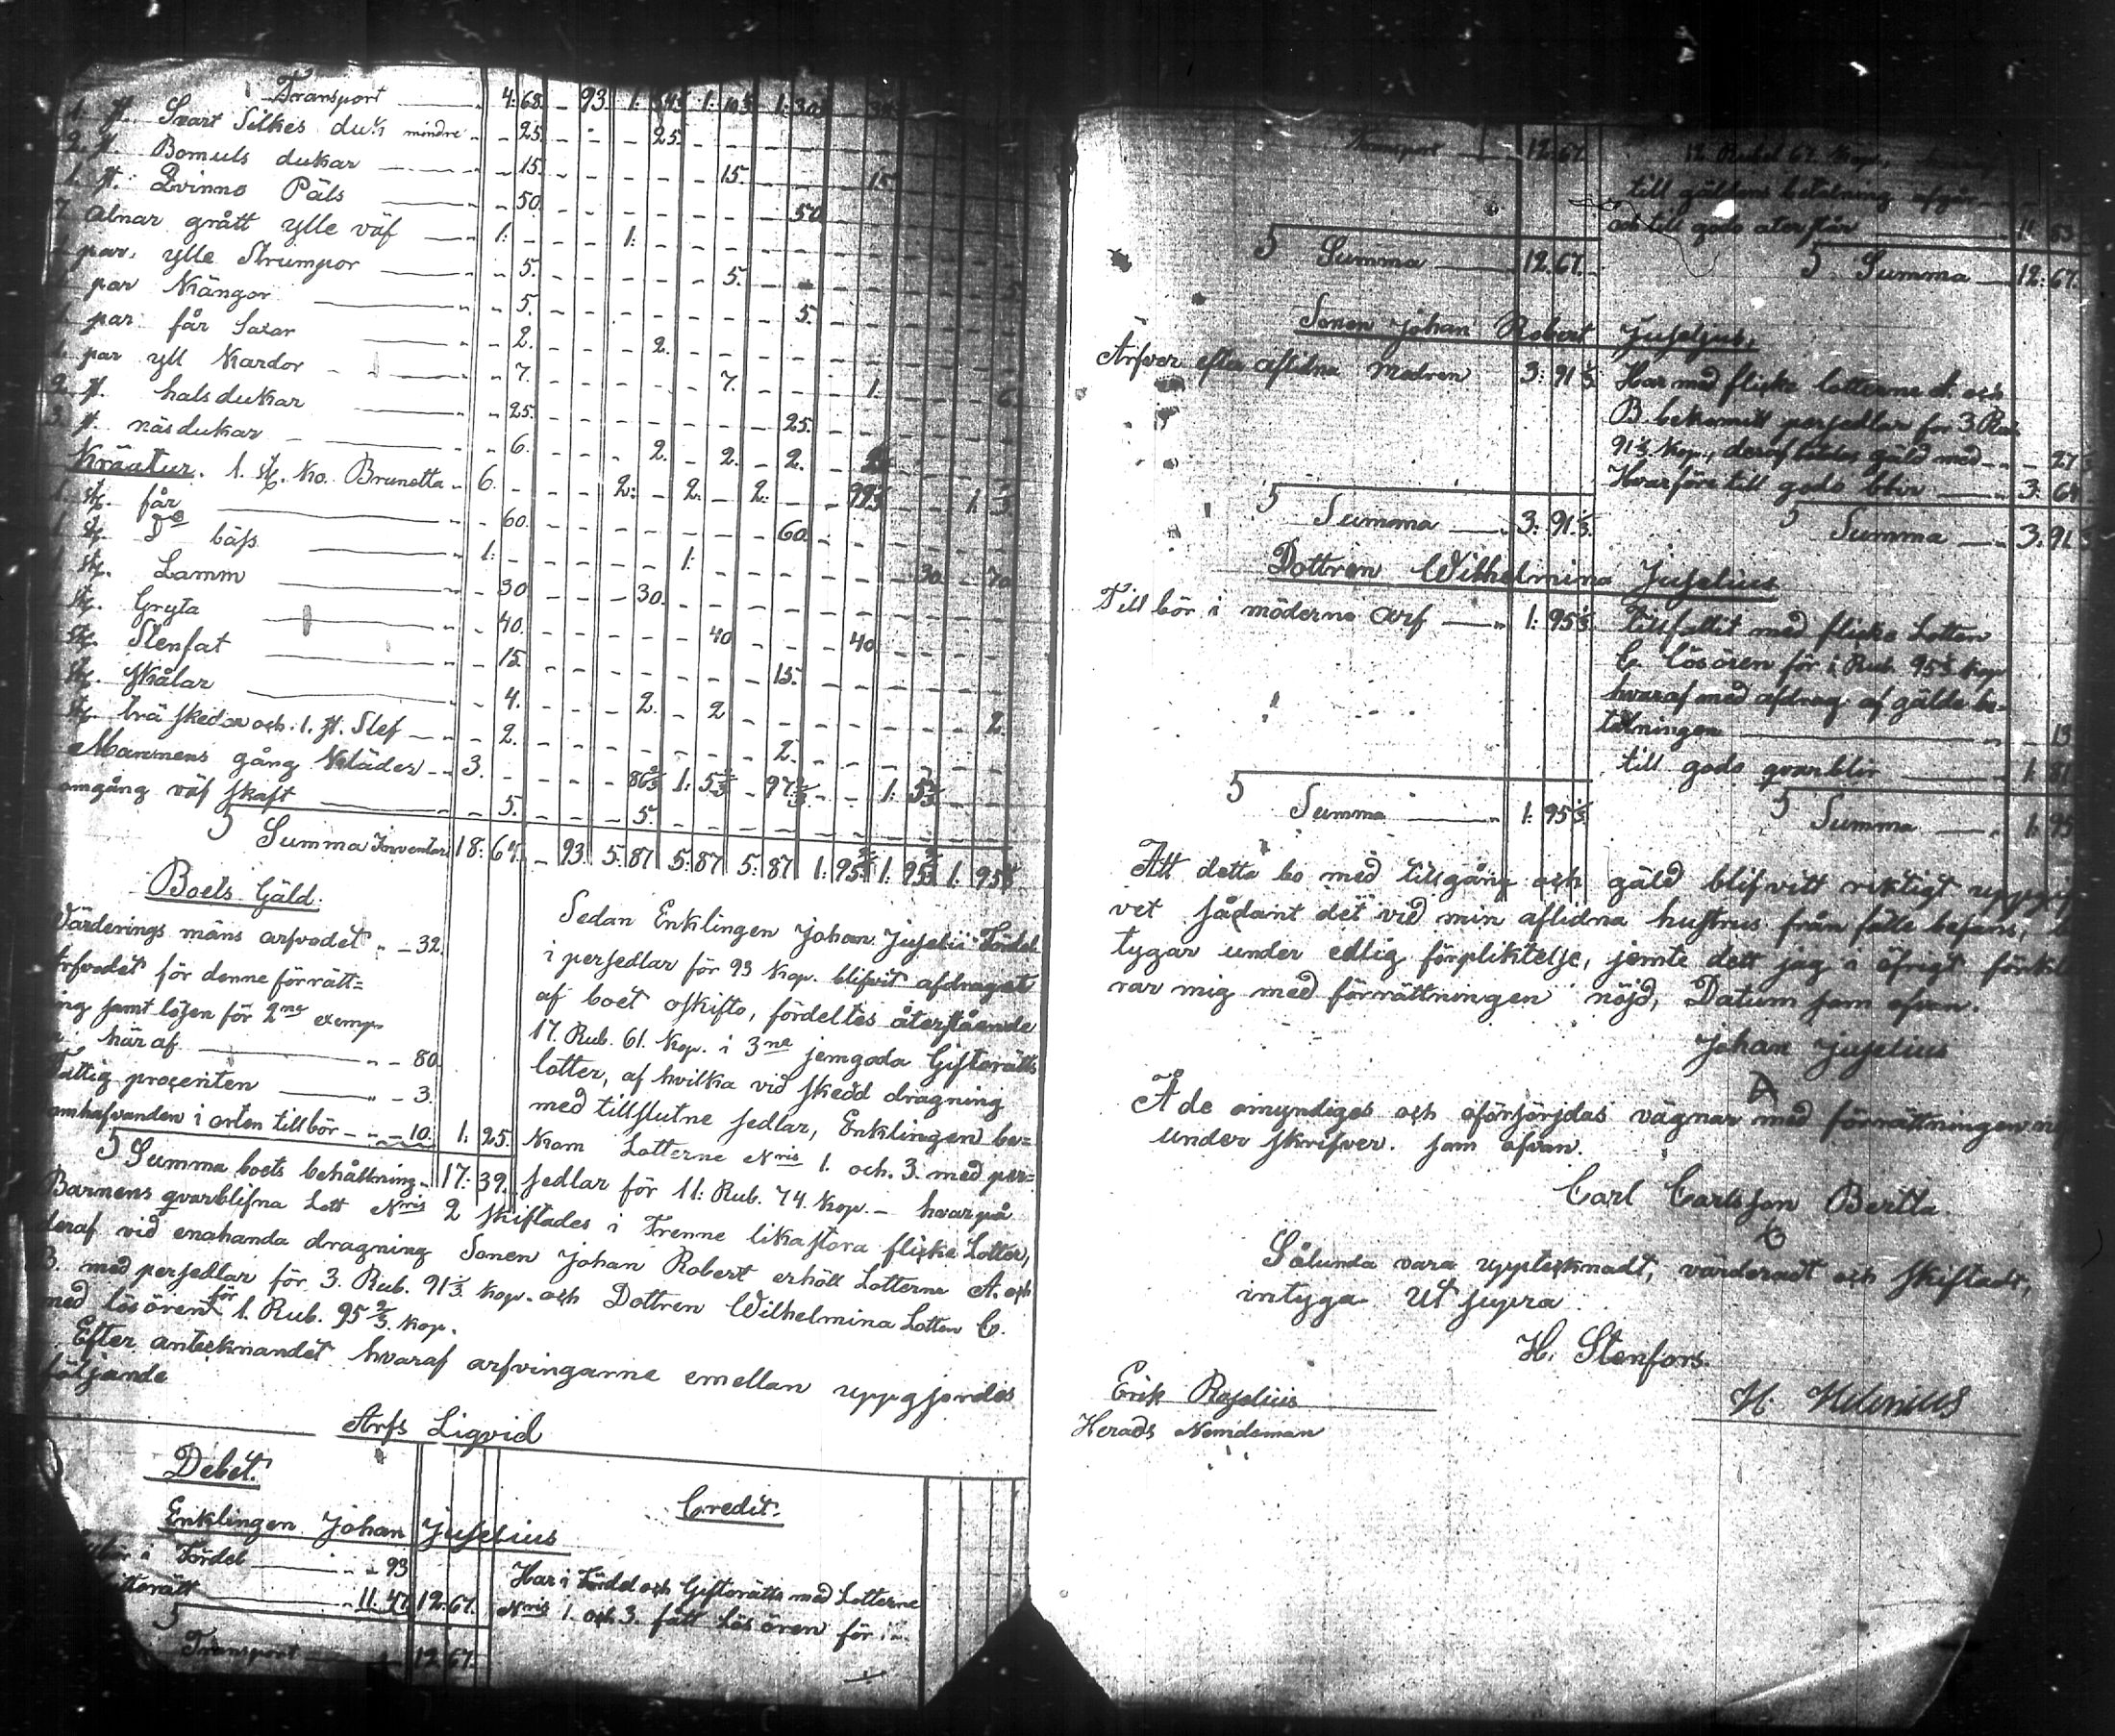 Transport 4: 68. - 93. 1: 1: 10 1: 30
1. st. Svart Silkes duk mindre - 25. - - - 25.
2. st. Bomuls dukar - 15. 15. 15
1. st. Qvinno Päls - 50. 50
7 alnar grått ylle väf 1: 1:
par. ylle Strumpor - 5. 5. 5.
par Kängor - 5. 5.
1. par får Saxar - 2. 2.
1. par yll Kardor - 7. 7. 1. 6.
2. st. halsdukar - 25. 25.
3. st. näsdukar - 6. 2. 2. 2.
Kräatur. 1. st. Ko. Brunetta 6. 2: 2: 2:
1. st. får - 60. 60.
1 st. Do bäss 1: 1: 30. 70
st. Lamm - 30 30.
st. Gryta - 40. 40 40.
st. Stenfat - 15. 15.
st. Skålar - 4. 2. 2 2.
st. trä skedar och 1. st. Slef - 2. 2.
Mannens gång Kläder 3. 86 2/3 1: 5 2/3 97 2/3 1: 5 2/3
omgång väf skaft - 5. 5.
S Summa Inventar 18: 64. - 93. 5: 87 5: 87 5: 87 1: 95 2/3 1: 95 2/3 1: 95 2/3
Boets Gäld.
Värderings mäns arfvodet - 32.
Arfvodet för denne förrätt=
ing samt lösen för 2ne exemp
häraf - 80.
Fattig procenten - 3.
amhafvanden i orten tillbör - 10. 1: 25.
S Summa boets behållning 17: 39.
Sedan Enklingen Johan Juselii Fördel
i persedlar för 93 Kop. blifvit afdraget
af boet oskifto, fördeltes återstående
17. Rub. 61. Kop. i 3ne jemgoda Giftorätts
lotter, af hvilka vid skedd dragning
med tillslutne sedlar, Enklingen be=
kom Lotterne Nris 1. och. 3. med per=
sedlar för 11: Rub. 74. Kop. - hvarpå
Barnens qvarblifna Lott Nris 2 skiftades i Trenne lika stora fliske Lotter,
deraf vid enahanda dragning Sonen Johan Robert erhöll Lotterne A. och
B. med persedlar för 3. Rub. 91 1/3 Kop. och Dottren Wilhelmina Lotten C.
med lösören för 1. Rub. 95 2/3. Kop.
Efter antecknandet hvaraf arfvingarne emellan uppgjordes
följande
Arfs Liqvid
Debet. Credit.
Enklingen Johan Juselius
i Fördel - 93
11. 74 12. 67.
Har i Fördel och Giftorätts med Lotterne
Nris 1. och 3. fått Lösören för
S Transport 12 67.
Transport 12. 67.
12 Rubel 67. Kop.,
till gäldens betalning afgår
och till godo återstår
S Summa 12. 67. S Summa 12: 67.
Sonen Johan Robert Juselius.
Arfver efter aflidna Modren 3: 91 1/3
Har med fliske lotterne A. och
B. bekomitt persedlar för 3 Rub
91 1/3 Kop., deraf gäld med - 27
Hvarföre till godo blir 3: 64
S Summa 3: 91 1/3. S Summa 3: 91
Dottren Wilhelmina Juselius
Tillbör i möderne Arf 1: 95 2/3
Tillfallit med fliske Lotten
C. lösören för 1 Rub. 95 2/3 Kop
hvaraf med afdrag af gälds be-
talningen 13
till godo qvarblir 1: 81
S Summa 1: 95 2/3. S Summa 1: 95
Att detta bo med tillgång och gäld blifvitt riktigt uppgif
vet sådant det vid min aflidna hustrus från fälle befans, be
tygar under edlig förpliktelse, jemte dett jag i öfrigt förkla
rar mig med förrättningen nöjd, Datum som ofvan.
Johan Juselius
Å de omyndiges och oförsörjdas vägnar med förrättningen nöjd
under skrifver. som ofvan.
Carl Carlsson Bertta
Sålunda vara upptecknadt, värderadt och skiftadt,
intyga Ut supra
H. Stenfors.
Erik Roselius
Herads Nemdeman
H. Helenius